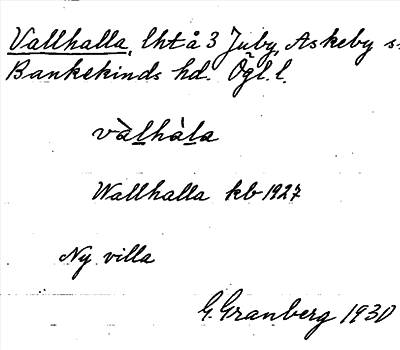 Vallhalla, lht å 3 Juby, Askeby s
Bankekinds hd. Ögl. l.
vàlhàla
Wallhalla kb 1927
Ny villa
G. Granberg 1930